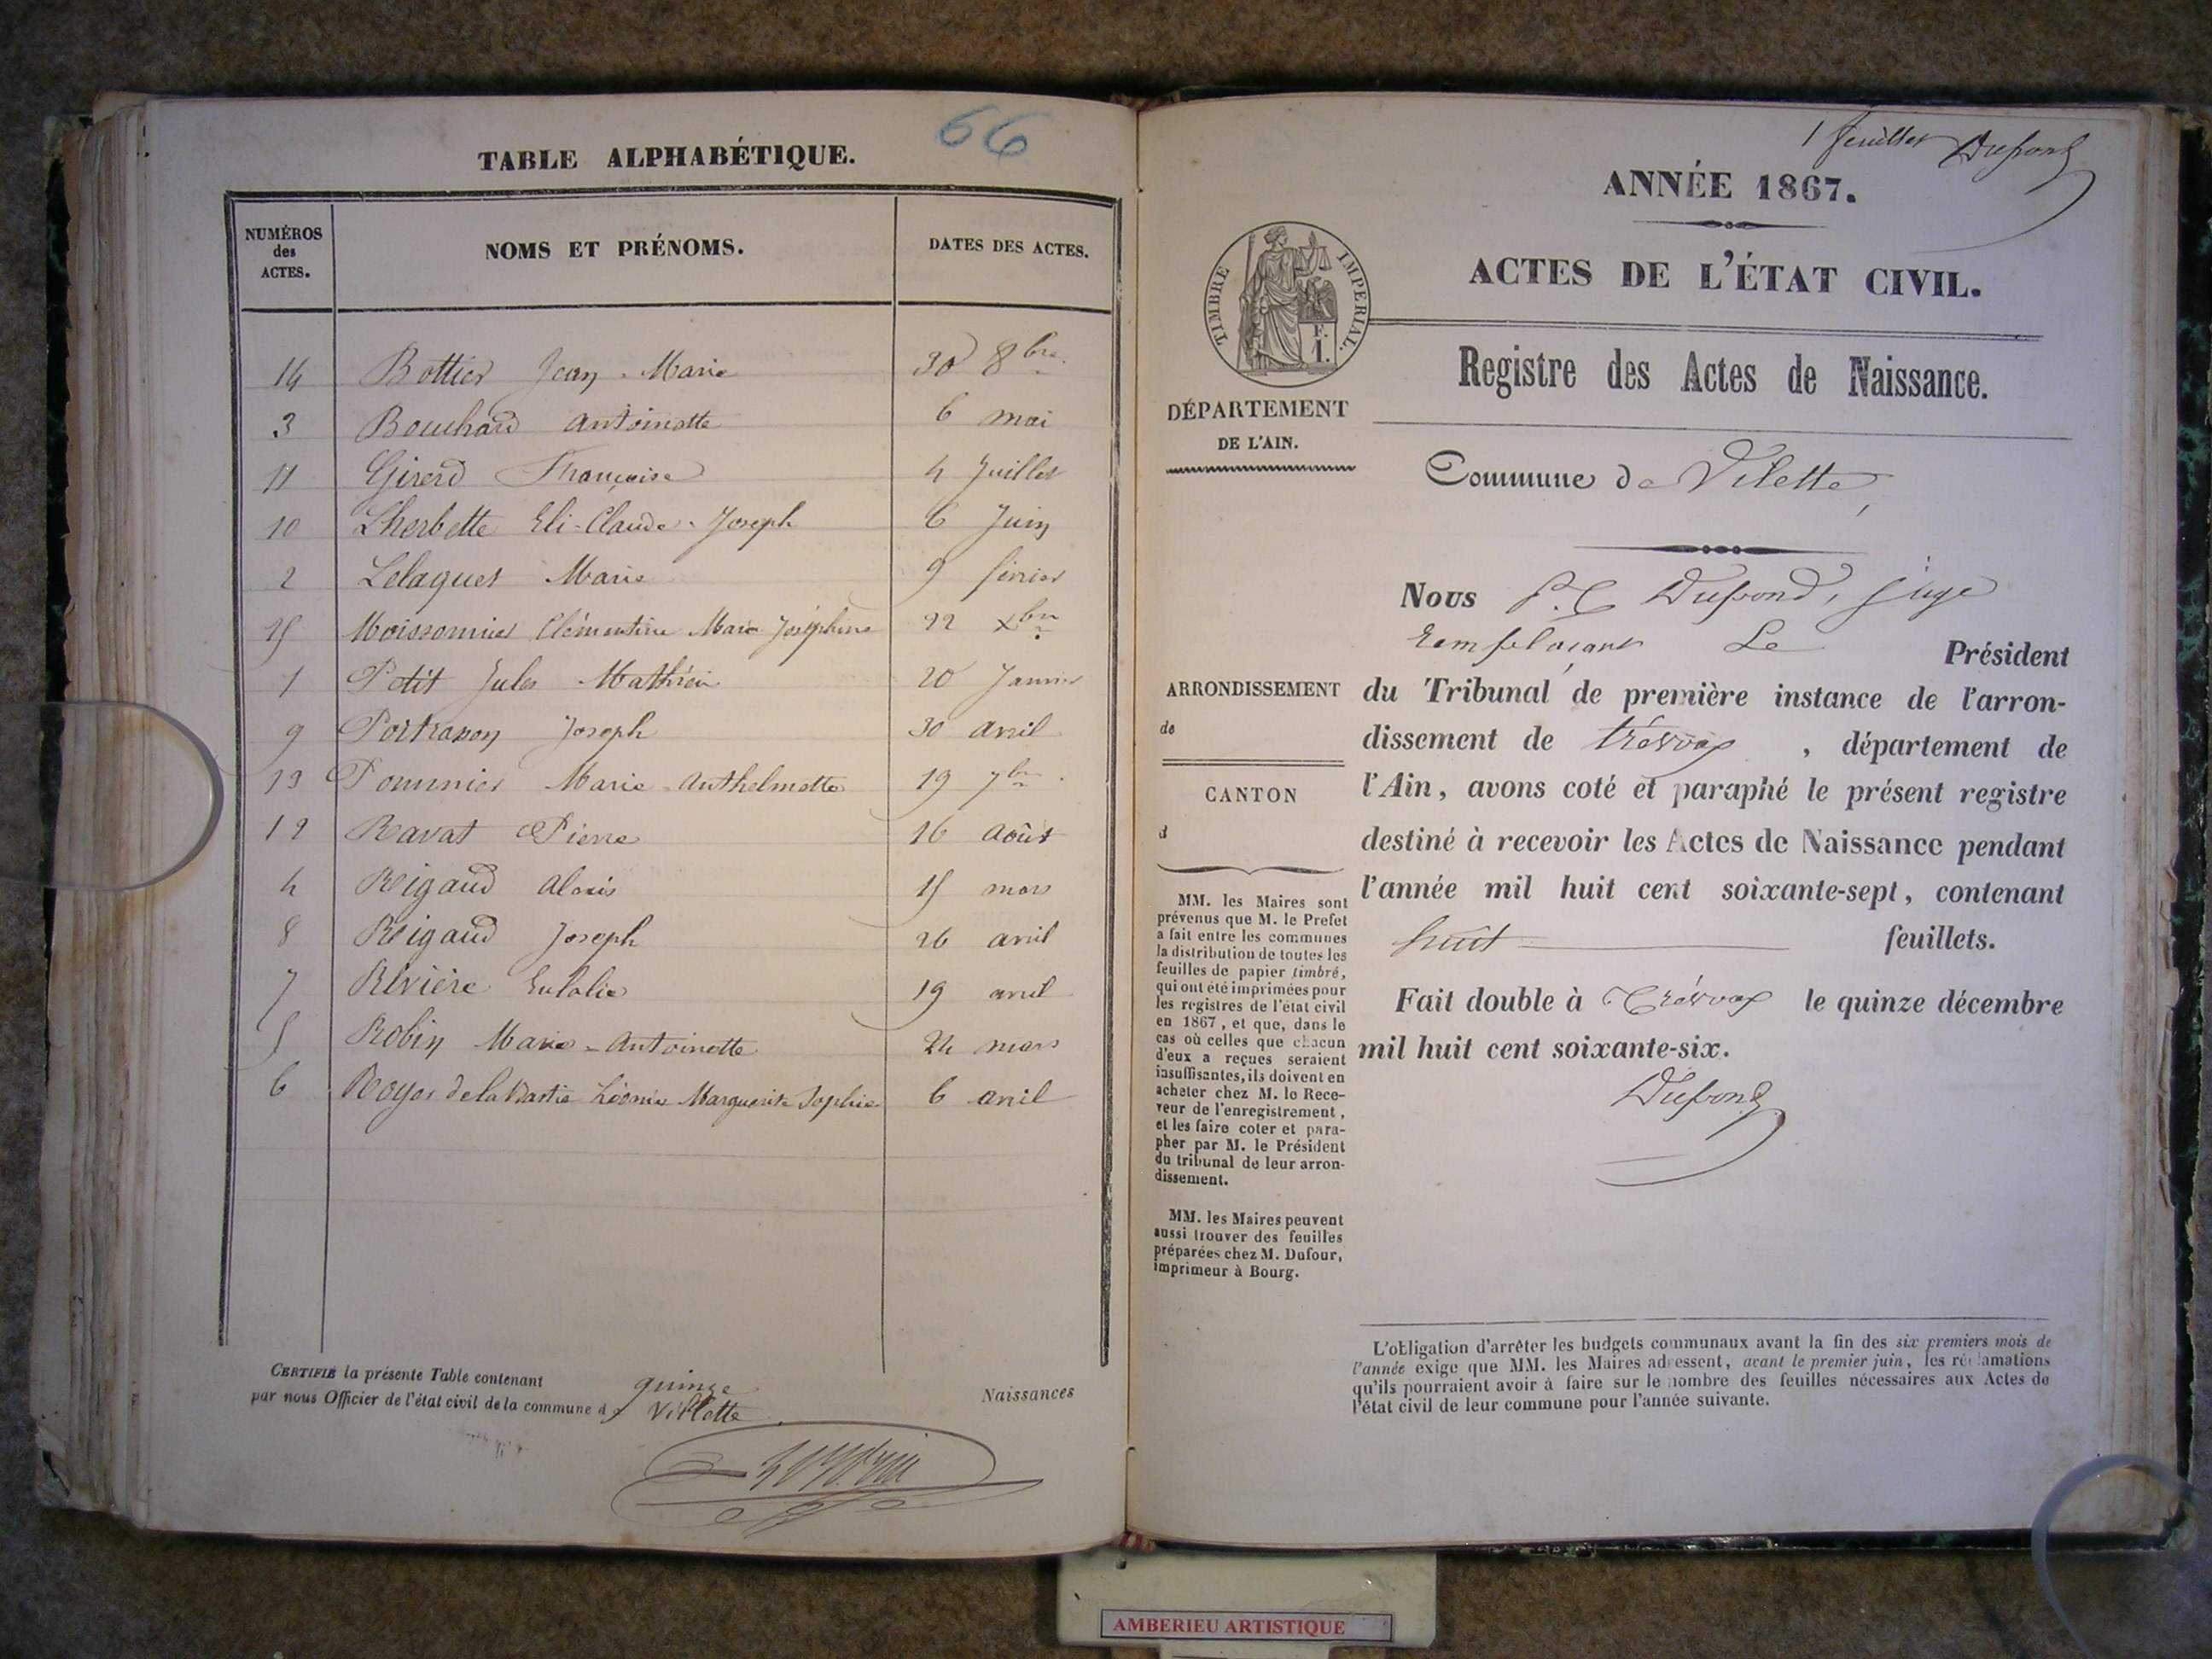 66
TABLE ALPHABÉTIQUE.
NUMÉROS des ACTES.
NOMS ET PRÉNOMS.
DATES DES ACTES.
14 Bottier Jean-Marie 30 8bre.
3 Bouchard Antoinette 6 mai
11 Girerd Françoise 4 Juillet
10 Lherbette Eli-Claude-Joseph 6 Juin
2 Lelaquet Marie 9 février
15 Moissonnier Clémentine Marie Joséphine 22 Xbre
1 Petit Jules Mathieu 20 Janvier
9 Portrapon Joseph 30 avril
13 Pommier Marie-Anthelmette 19 7bre.
12 Ravat Pierre 16 Août
4 Reigaud Alexis 15 mars
8 Reigaud Joseph 26 avril
7 Rivière Eulalie 19 avril
5 Robin Marie-Antoinette 24 mars
6 Royer de la Bastie Léonie Marguerite Sophie 6 avril
CERTIFIÉ la présente Table contenant quinze Naissances
par nous Officier de l'état civil de la commune de Villette
1 feuillet Dupond
ANNÉE 1867.
TIMBRE IMPERIAL.
F.
1.
ACTES DE L'ÉTAT CIVIL.
Registre des Actes de Naissance.
DÉPARTEMENT
DE L'AIN.
Commune de Vilette,
Nous P. C Dupond, juge
remplaçant Le Président
du Tribunal de première instance de l'arron-
dissement de trévoux, département de
l'Ain, avons coté et paraphé le présent registre
destiné à recevoir les Actes de Naissance pendant
l'année mil huit cent soixante-sept, contenant
huit feuillets.
Fait double à Trévoux le quinze décembre
mil huit cent soixante-six.
Dupond
ARRONDISSEMENT
de
CANTON
d
MM. les Maires sont
prévenus que M. le Prefet
a fait entre les communes
la distribution de toutes les
feuilles de papier timbré,
qui ont été imprimées pour
les registres de l'état civil
en 1867, et que, dans le
cas où celles que chacun
d'eux a reçues seraient
insuffisantes, ils doivent en
acheter chez M. le Rece-
veur de l'enregistrement,
et les faire coter et para-
pher par M. le Président
du tribunal de leur arron-
dissement.
MM. les Maires peuvent
aussi trouver des feuilles
préparées chez M. Dufour,
imprimeur à Bourg.
L'obligation d'arrêter les budgets communaux avant la fin des six premiers mois de
l'année exige que MM. les Maires adressent, avant le premier juin, les réclamations
qu'ils pourraient avoir à faire sur le nombre des feuilles nécessaires aux Actes de
l'état civil de leur commune pour l'année suivante.
AMBERIEU ARTISTIQUE